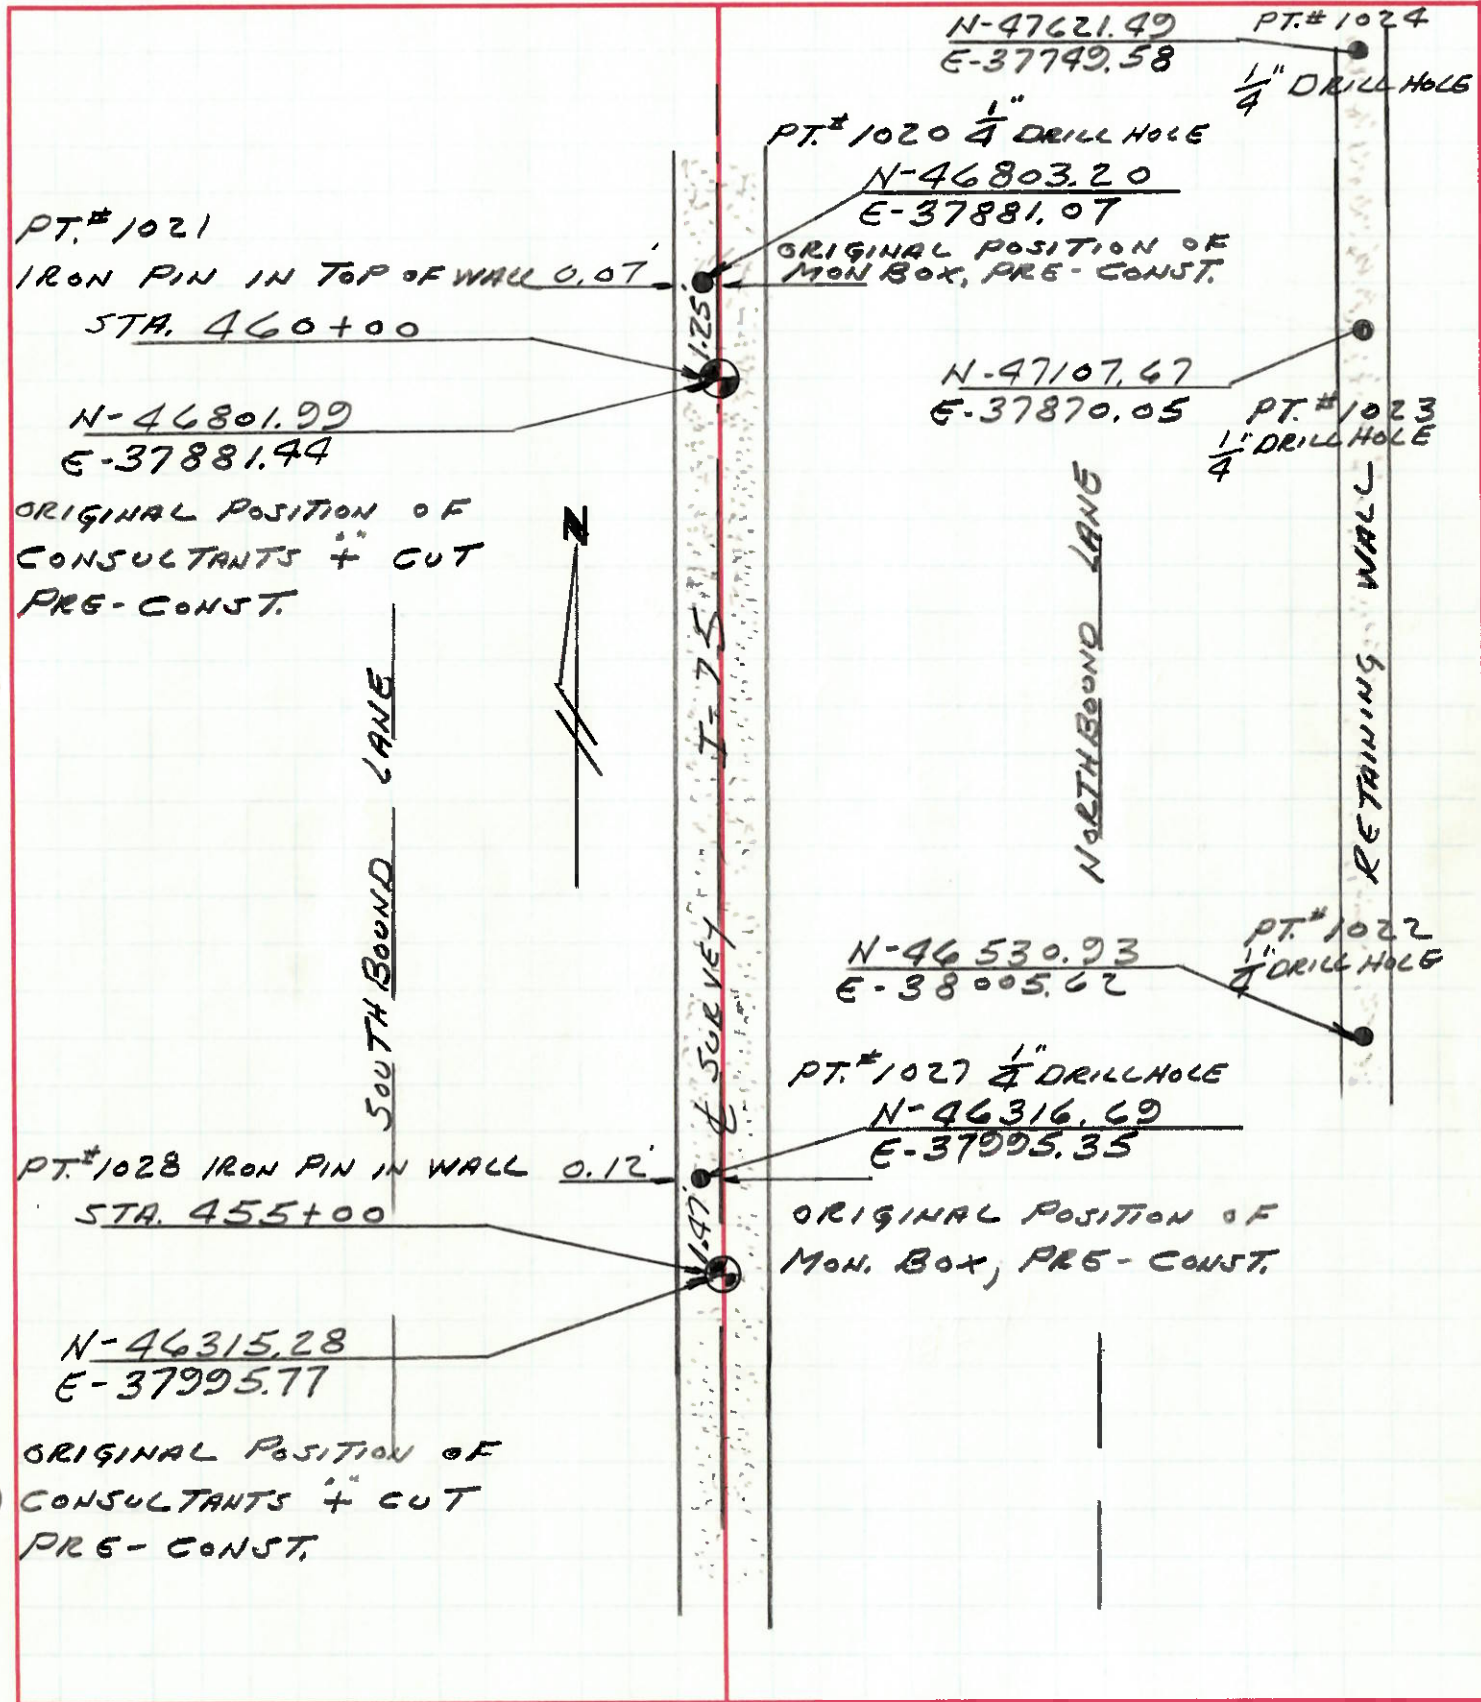 N-47621.49
E-37749.58
PT.# 1024
1/4" DRILL HOLE
PT.# 1020 1/4" DRILL HOLE
N-46803.20
E-37881.07
ORIGINAL POSITION OF
MON BOX, PRE-CONST.
PT.# 1021
IRON PIN IN TOP OF WALL 0.07'
STA. 460+00
1.25'
N-46801.99
E-37881.44
ORIGINAL POSITION OF
CONSULTANTS "+" CUT
PRE-CONST.
N-47107.67
E-37870.05
PT.# 1023
1/4" DRILL HOLE
N
SOUTH BOUND LANE
℄ SURVEY I-75
NORTHBOUND LANE
RETAINING WALL
N-46530.93
E-38005.62
PT.# 1022
1/4" DRILL HOLE
PT.# 1027 1/4" DRILL HOLE
N-46316.69
E-37995.35
ORIGINAL POSITION OF
MON. BOX, PRE-CONST.
PT.# 1028 IRON PIN IN WALL 0.12'
STA. 455+00
1.47'
N-46315.28
E-37995.77
ORIGINAL POSITION OF
CONSULTANTS "+" CUT
PRE-CONST.